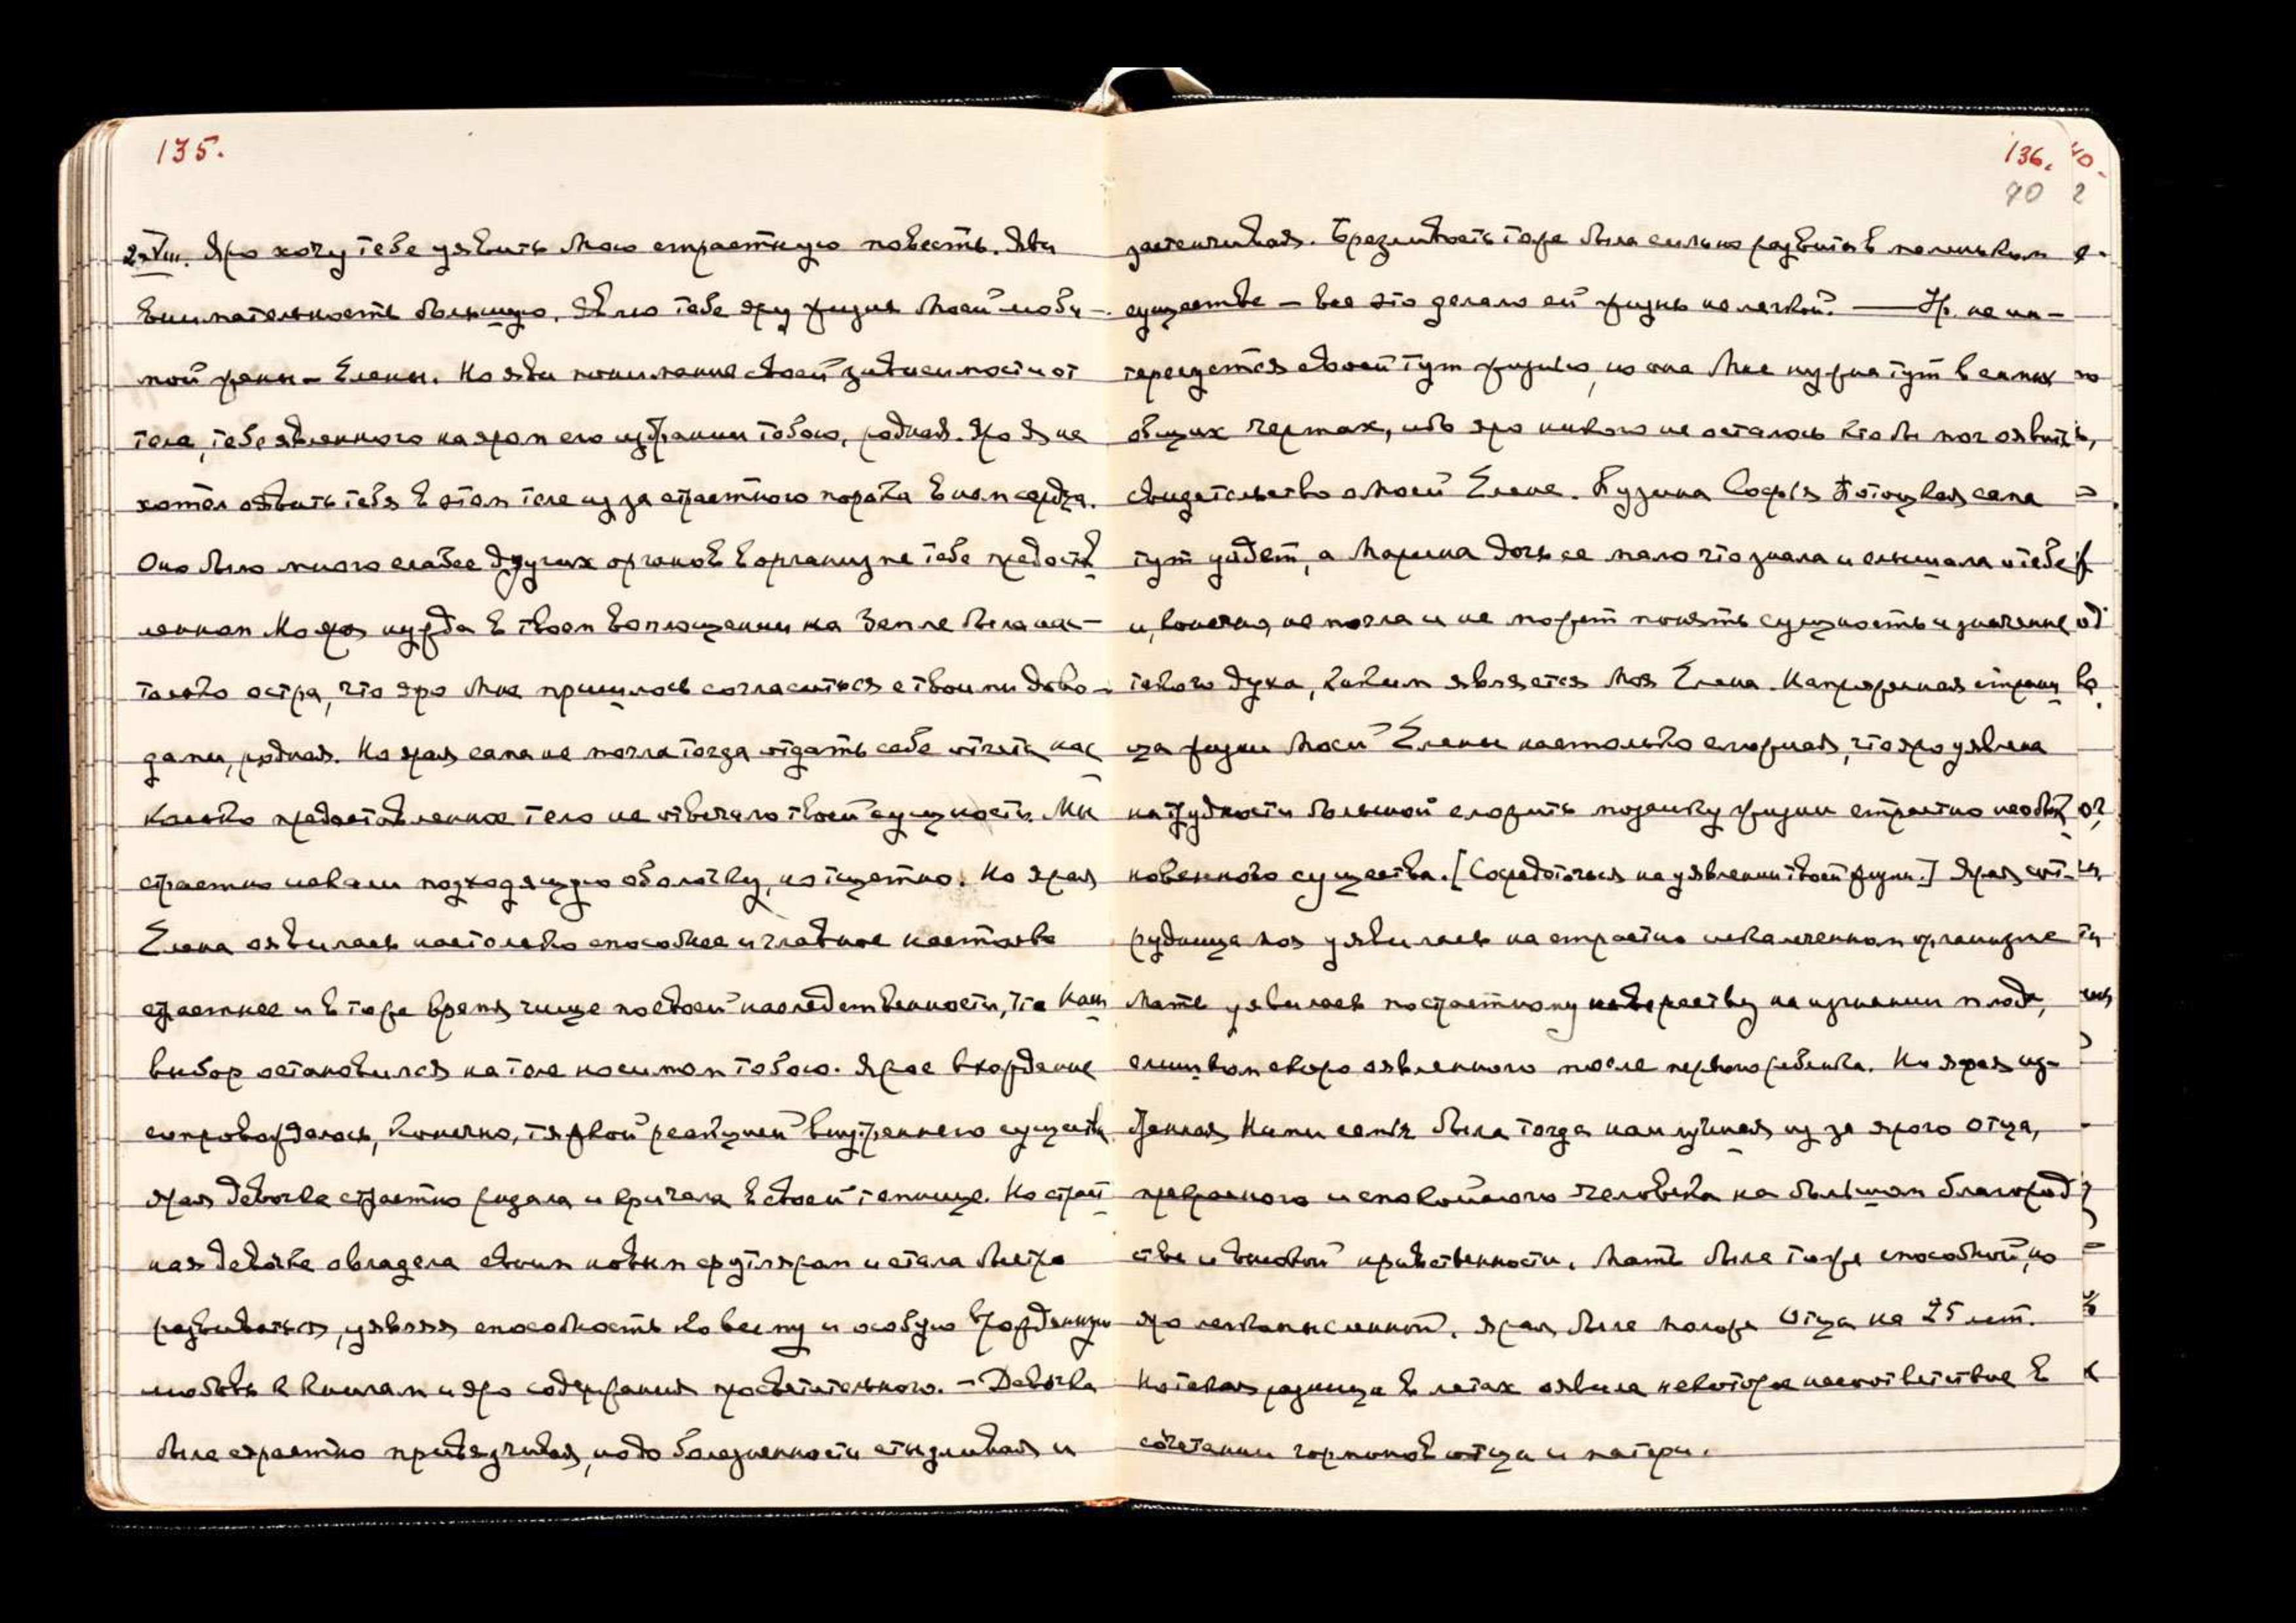 135.
2-VIII. Яро хочу тебе уявить Мою страстную повесть. Яви
внимательность большую. Явлю тебе яру жизнь Моей люби-
мой жены - Елены. Но яви понимание своей зависимости от
тела, тебе явленного на яром его избрании тобою, родная. Яро Я не
хотел оявить тебя в этом теле из за страстного порока в нем сердца.
Оно было много слабее других органов в организме тебе предостав
ленном. Но яра нужда в твоем воплощении на Земле была нас-
только остра, что яро Мне пришлось согласиться с твоими дово-
дами, родная. Но ярая сама не могла тогда отдать себе отчета нас
колько предоставленное тело не отвечало твоей сущности. Мы
страстно искали подходящую оболочку, но тщетно. Но ярая
Елена оявилась настолько способнее и главное настолько
страстнее и в то же время чище по своей наследственности, что Наш
выбор остановился на теле носимом тобою. Ярое вхождение
сопровождалось, конечно, тяжкой реакцией внутреннего существа
ярая девочка страстно рыдала и кричала в своей темнице. Но страст
ная девочка овладела своим новым футляром и стала быстро
развиваться, являя способность ко всему и особую врожденную
любовь к книгам и яро содержания просветительного. - Девочка
была страстно привязчивая, но до болезненности стыдливая и
136.
90
застенчивая. Брезгливость тоже была сильно развита в маленьком
существе - все это делало ей жизнь не легкой. — Ур. не ин-
тересуется своей тут жизнью, но она Мне нужна тут в самых
общих чертах, ибо яро никого не осталось кто бы мог оявить,
свидетельство о Моей Елене. Кузина София Потоцкая сама
тут уйдет, а Марина дочь ее мало что знала и слышала о тебе
и, конечно, не могла и не может понять сущность и значение
такого духа, каким является Моя Елена. Напряженная страни
ца жизни Моей Елены настолько сложная, что яро уявлена
на трудности большой сложить мозаику жизни страстно необык
новенного существа. [Сосредоточься на уявлении твоей жизни.] Ярая сот-
рудница моя уявилась на страстно искалеченном организме
Мать уявилась по страстному на изгнании плода,
слишком скоро оявленного после первого ребенка. Но ярая из-
бранная Нами семья была тогда наилучшая из за ярого отца,
прекрасного и спокойного человека на большом благород
стве и высокой нравственности. Мать была тоже способной, но
яро легкомысленной. Ярая была моложе Отца на 25 лет.
Но такая разница в летах оявила некоторое несоответствие в
сочетании гормонов отца и матери.